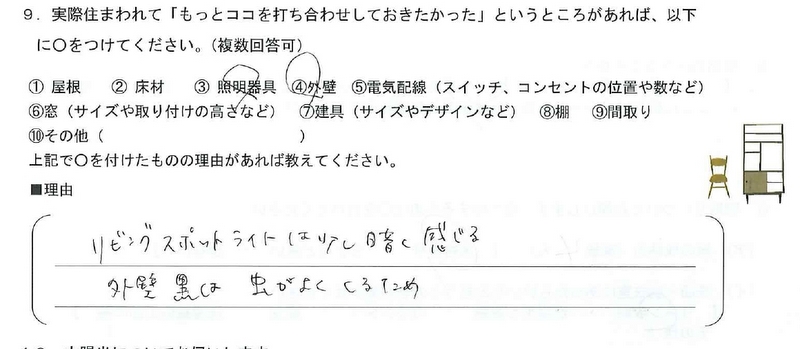 ９．実際住まわれて「もっとココを打ち合わせしておきたかった」というところがあれば、以下
に〇をつけてください。（複数回答可）
① 屋根　② 床材　③ 照明器具　④外壁　⑤電気配線（スイッチ、コンセントの位置や数など）
⑥窓（サイズや取り付けの高さなど）　⑦建具（サイズやデザインなど）　⑧棚　⑨間取り
⑩その他（　　　　　　　　　　　　　）
上記で〇を付けたものの理由があれば教えてください。
■理由
リビングスポットライトは少し暗く感じる
外壁黒は 虫がよくくるため